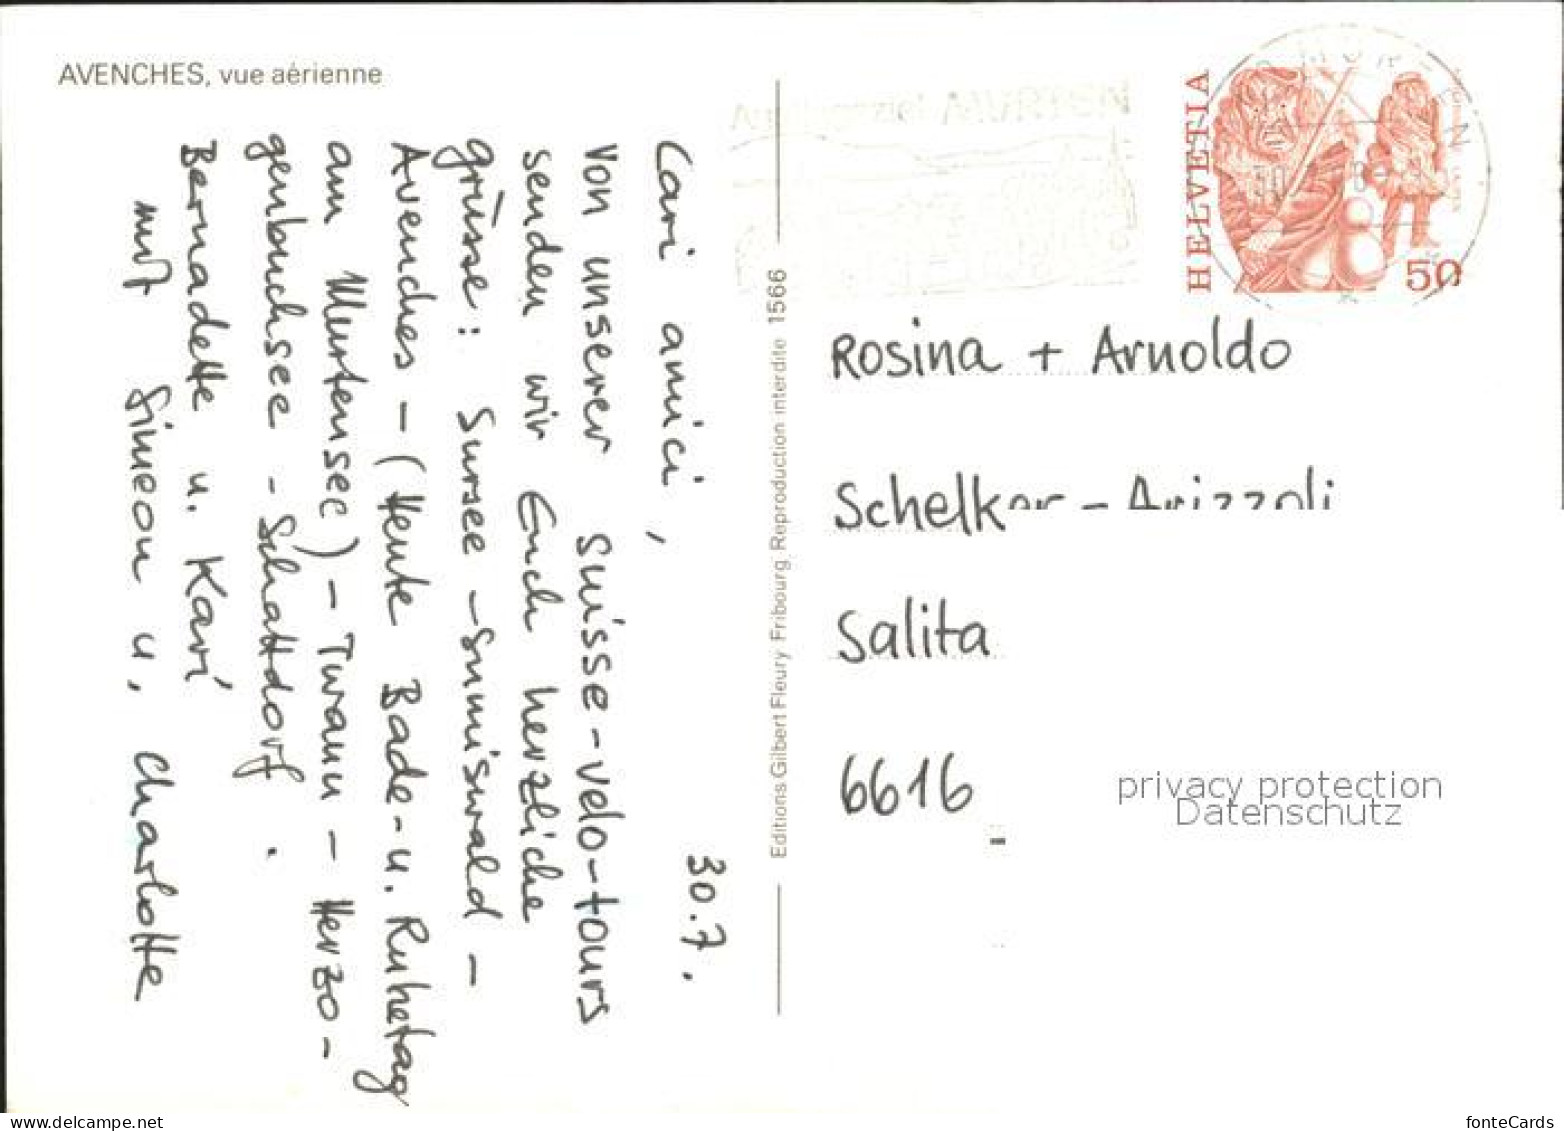 AVENCHES, vue aérienne
30.7.
Cari amici,
Von unserer Suisse-velo-tours
senden wir Euch herzliche
grüsse: Sursee - Sumiswald -
Avenches - (Heute Bade- u. Ruhetag
am Murtensee) - Twann - Herzo-
genbuchsee - Schattdorf.
Bernadette u. Kavi
mit Simeon u. Charlotte
Editions Gilbert Fleury Fribourg Reproduction interdite 1566
HELVETIA
50
Rosina + Arnoldo
Schelker - Arizzoli
Salita
6616
privacy protection
Datenschutz
www.ak-ansichtskarten.net
fonteCards